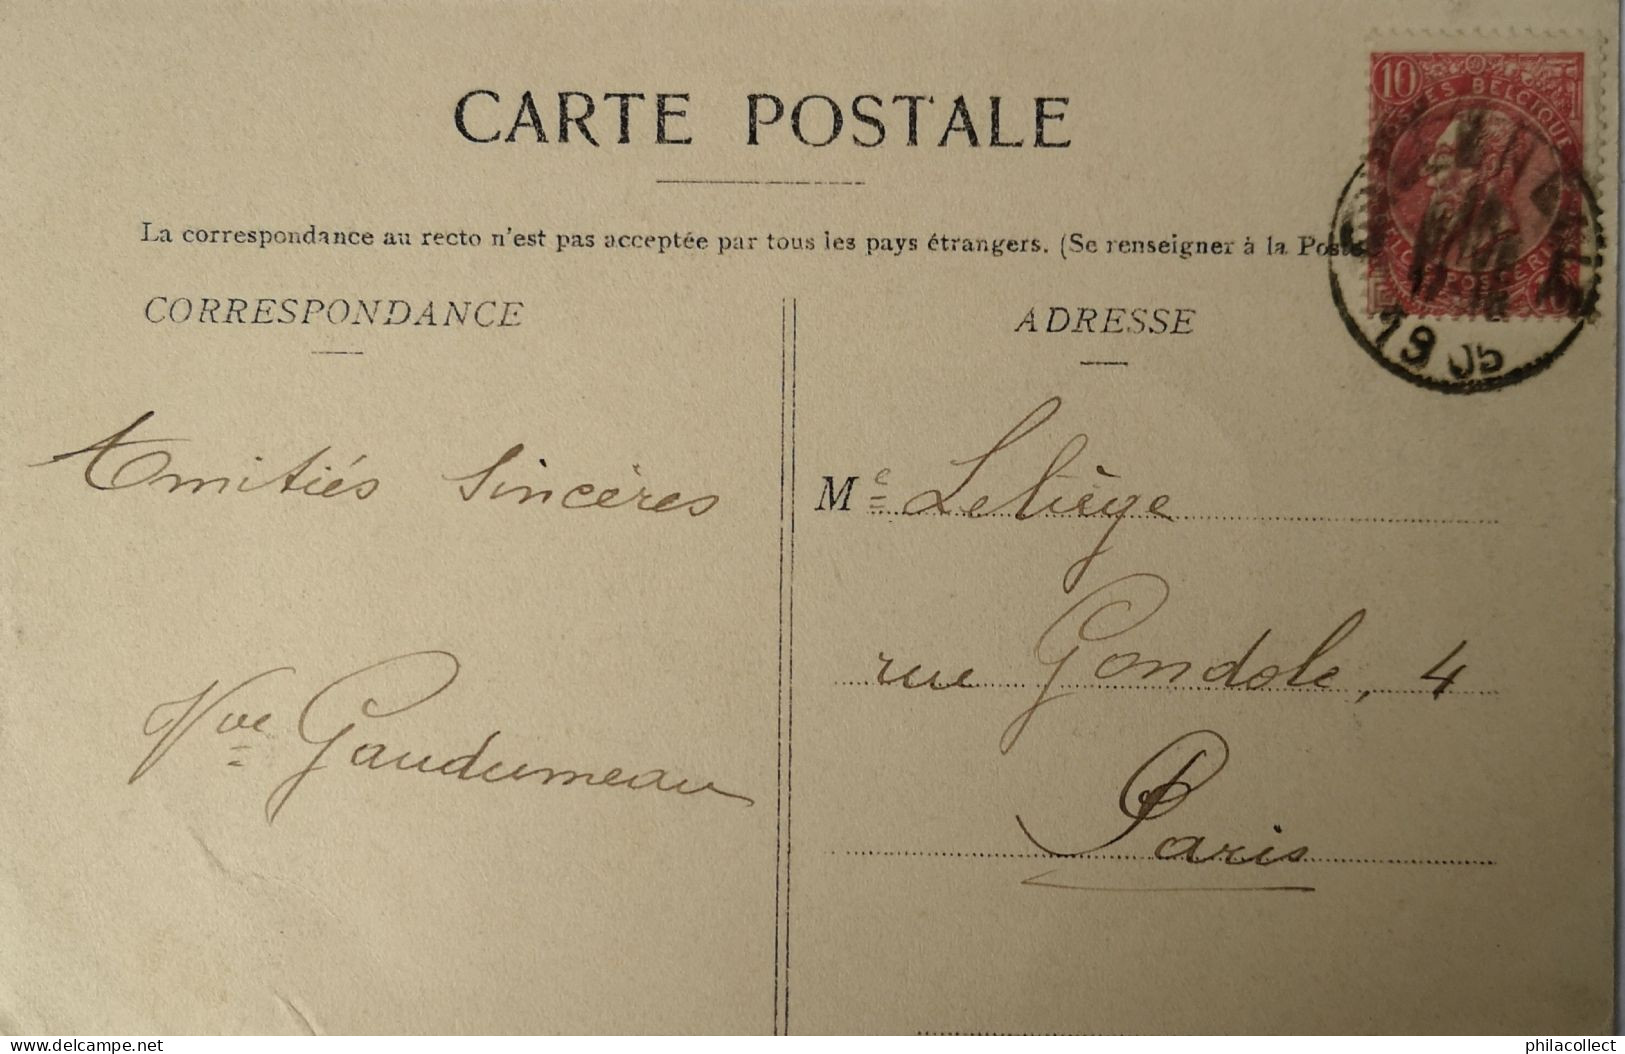 CARTE POSTALE
La correspondance au recto n'est pas acceptée par tous les pays étrangers. (Se renseigner à la Poste
CORRESPONDANCE
ADRESSE
10
BELGIQUE
1905
Amitiés Sincères
Mᵉ Leliège
rue Gondole, 4
Vve Gaudumeau
Paris
philacollect
www.delcampe.net